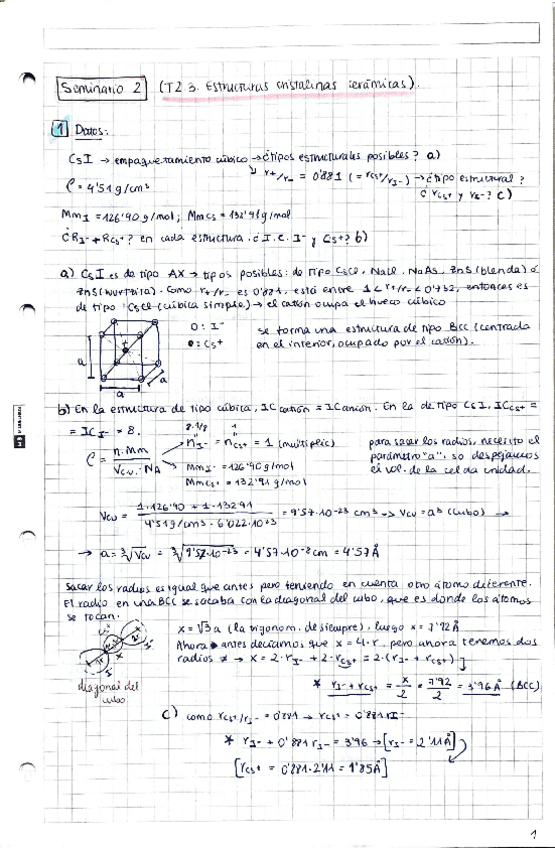 Seminario 2 (T2 3. Estructuras cristalinas cerámicas).
1 Datos:
CsI → empaquetamiento cúbico → ¿tipos estructurales posibles? a)
↳ r+/r- = 0'881 (= rCs+/rI-) → ¿tipo estructural?
ρ = 4'51 g/cm³ ¿ rCs+ y rI-? c)
MmI = 126'90 g/mol; MmCs = 132'91 g/mol
¿RI- + RCs+? en cada estructura. ¿I.C. I- y Cs+? b)
a) CsI es de tipo AX → tipos posibles: de tipo CsCl, NaCl, NaAs, ZnS (blenda) ó
ZnS (wurtzita). Como r+/r- es 0'881, está entre 1 < r+/r- < 0'732, entonces es
de tipo CsCl (cúbica simple) → el catión ocupa el hueco cúbico
O: I-
●: Cs+
se forma una estructura de tipo BCC (centrada
en el interior, ocupado por el catión).
a
a
a
b) En la estructura de tipo cúbica, IC catión = IC anión. En la de tipo CsI, ICCs+ =
= ICI- = 8.
8·1/8 1
ρ = n·Mm / Vcu·NA
nI- = nCs+ = 1 (multiplic)
MmI- = 126'90 g/mol
MmCs+ = 132'91 g/mol
para sacar los radios, necesito el
parámetro "a", so despejamos
el vol. de la celda unidad.
Vcu = 1·126'90 + 1·132'91 / 4'51 g/cm³ · 6'022·10²³ = 9'57·10⁻²³ cm³ → Vcu = a³ (cubo) →
→ a = ∛Vcu = ∛9'57·10⁻²³ = 4'57·10⁻⁸ cm = 4'57 Å
Sacar los radios es igual que antes pero teniendo en cuenta otro átomo diferente.
El radio en una BCC se sacaba con la diagonal del cubo, que es donde los átomos
se tocan.
x = √3 a (la trigonom. de siempre), luego x = 7'92 Å
Ahora antes decíamos que x = 4·r, pero ahora tenemos dos
radios ≠ → x = 2·rI- + 2·rCs+ = 2·(rI- + rCs+)
diagonal del
cubo
* rI- + rCs+ = x/2 = 7'92/2 = 3'96 Å (BCC)
c) como rCs+/rI- = 0'881 → rCs+ = 0'881 rI-
* rI- + 0'881 rI- = 3'96 → [rI- = 2'11 Å]
[rCs+ = 0'881·2'11 = 1'85 Å]
1